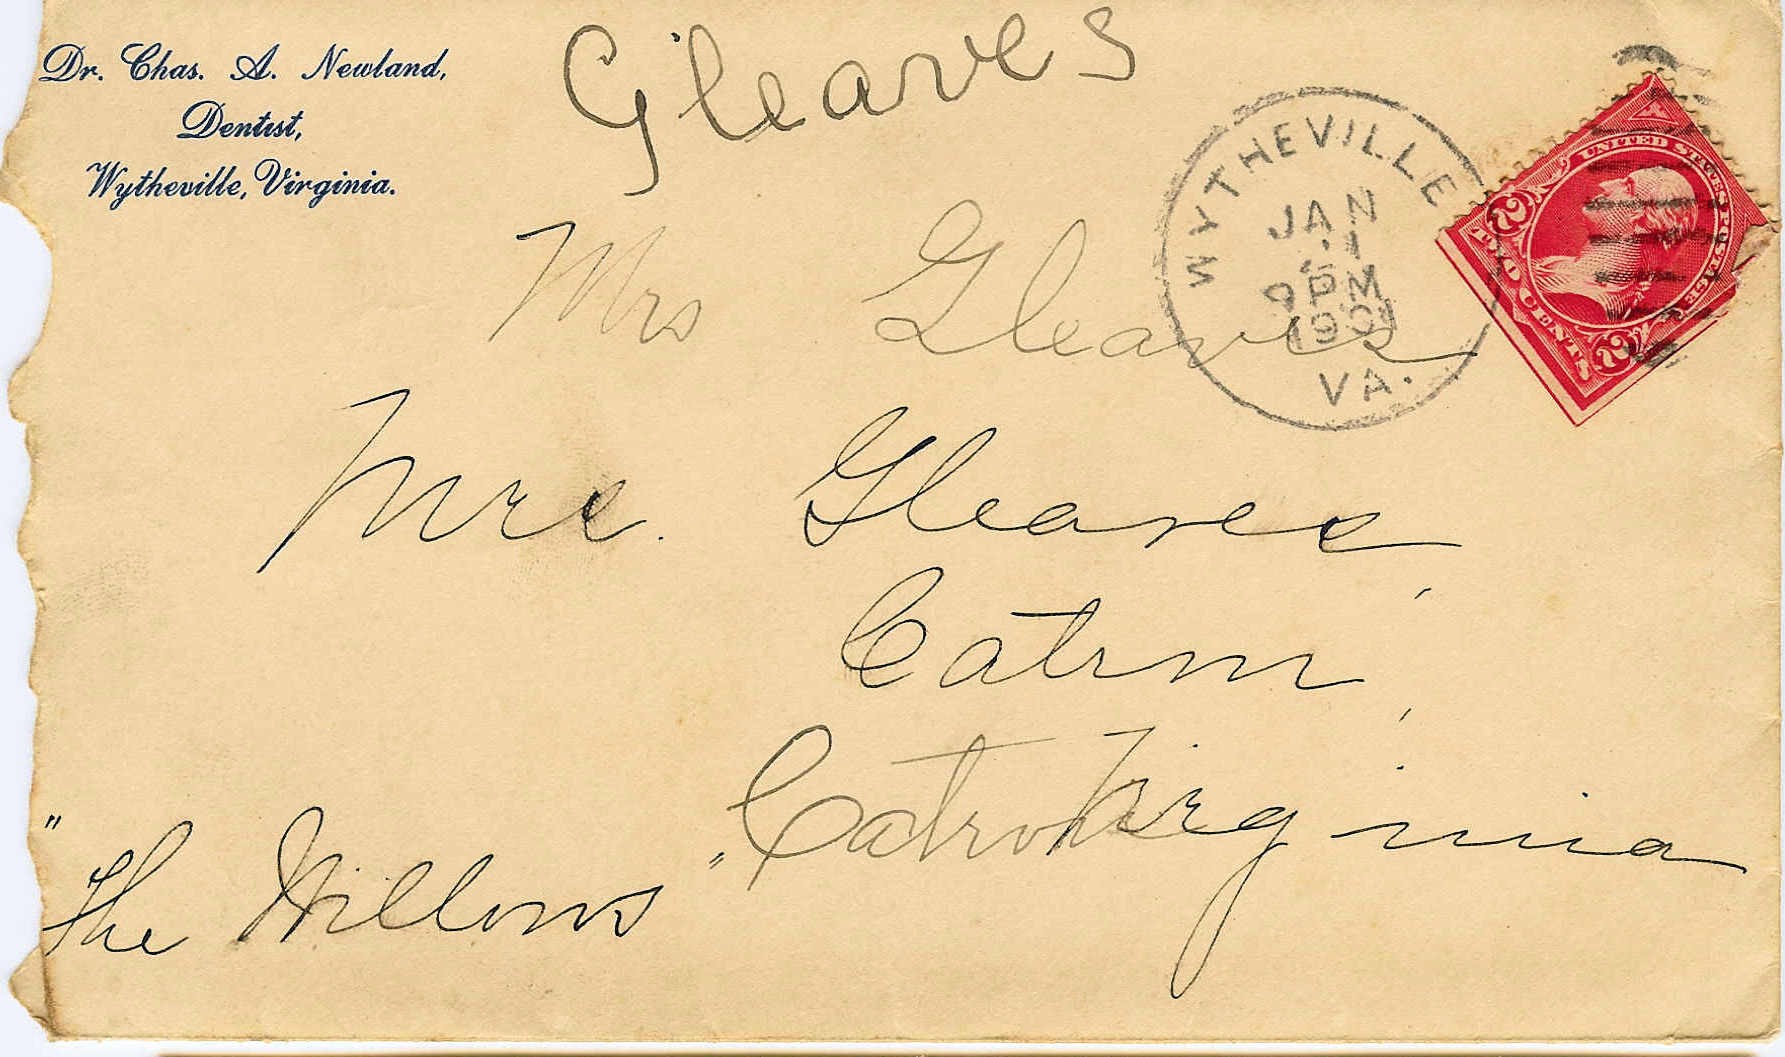 Dr. Chas. A. Newland,
Dentist,
Wytheville, Virginia.
Gleaves
WYTHEVILLE
JAN
9 PM
1901
VA.
UNITED STATES POSTAGE
2 2
TWO CENTS
Mrs Gleaves
Mrs. Gleaves,
Catron,
Catron
Virginia
"The Willows"